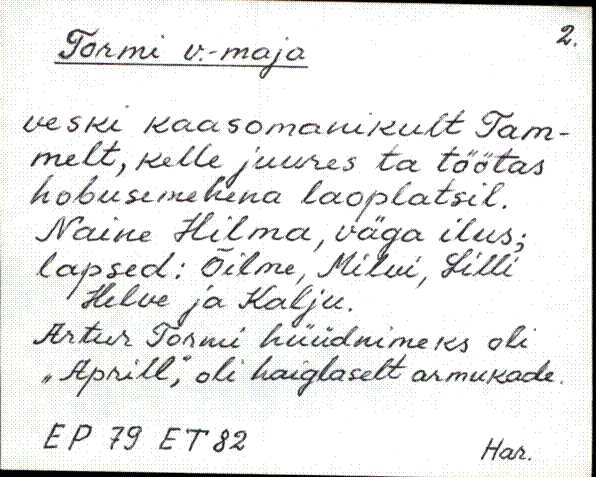 Tormi v.-maja
2.
veski kaasomanikult Tam-
melt, kelle juures ta töötas
hobusemehena laoplatsil.
Naine Hilma, väga ilus;
lapsed: Õilme, Milvi, Lilli
Helve ja Kalju.
Artur Tormi hüüdnimeks oli
„Aprill”, oli haiglaselt armukade.
EP 79 ET 82
Har.